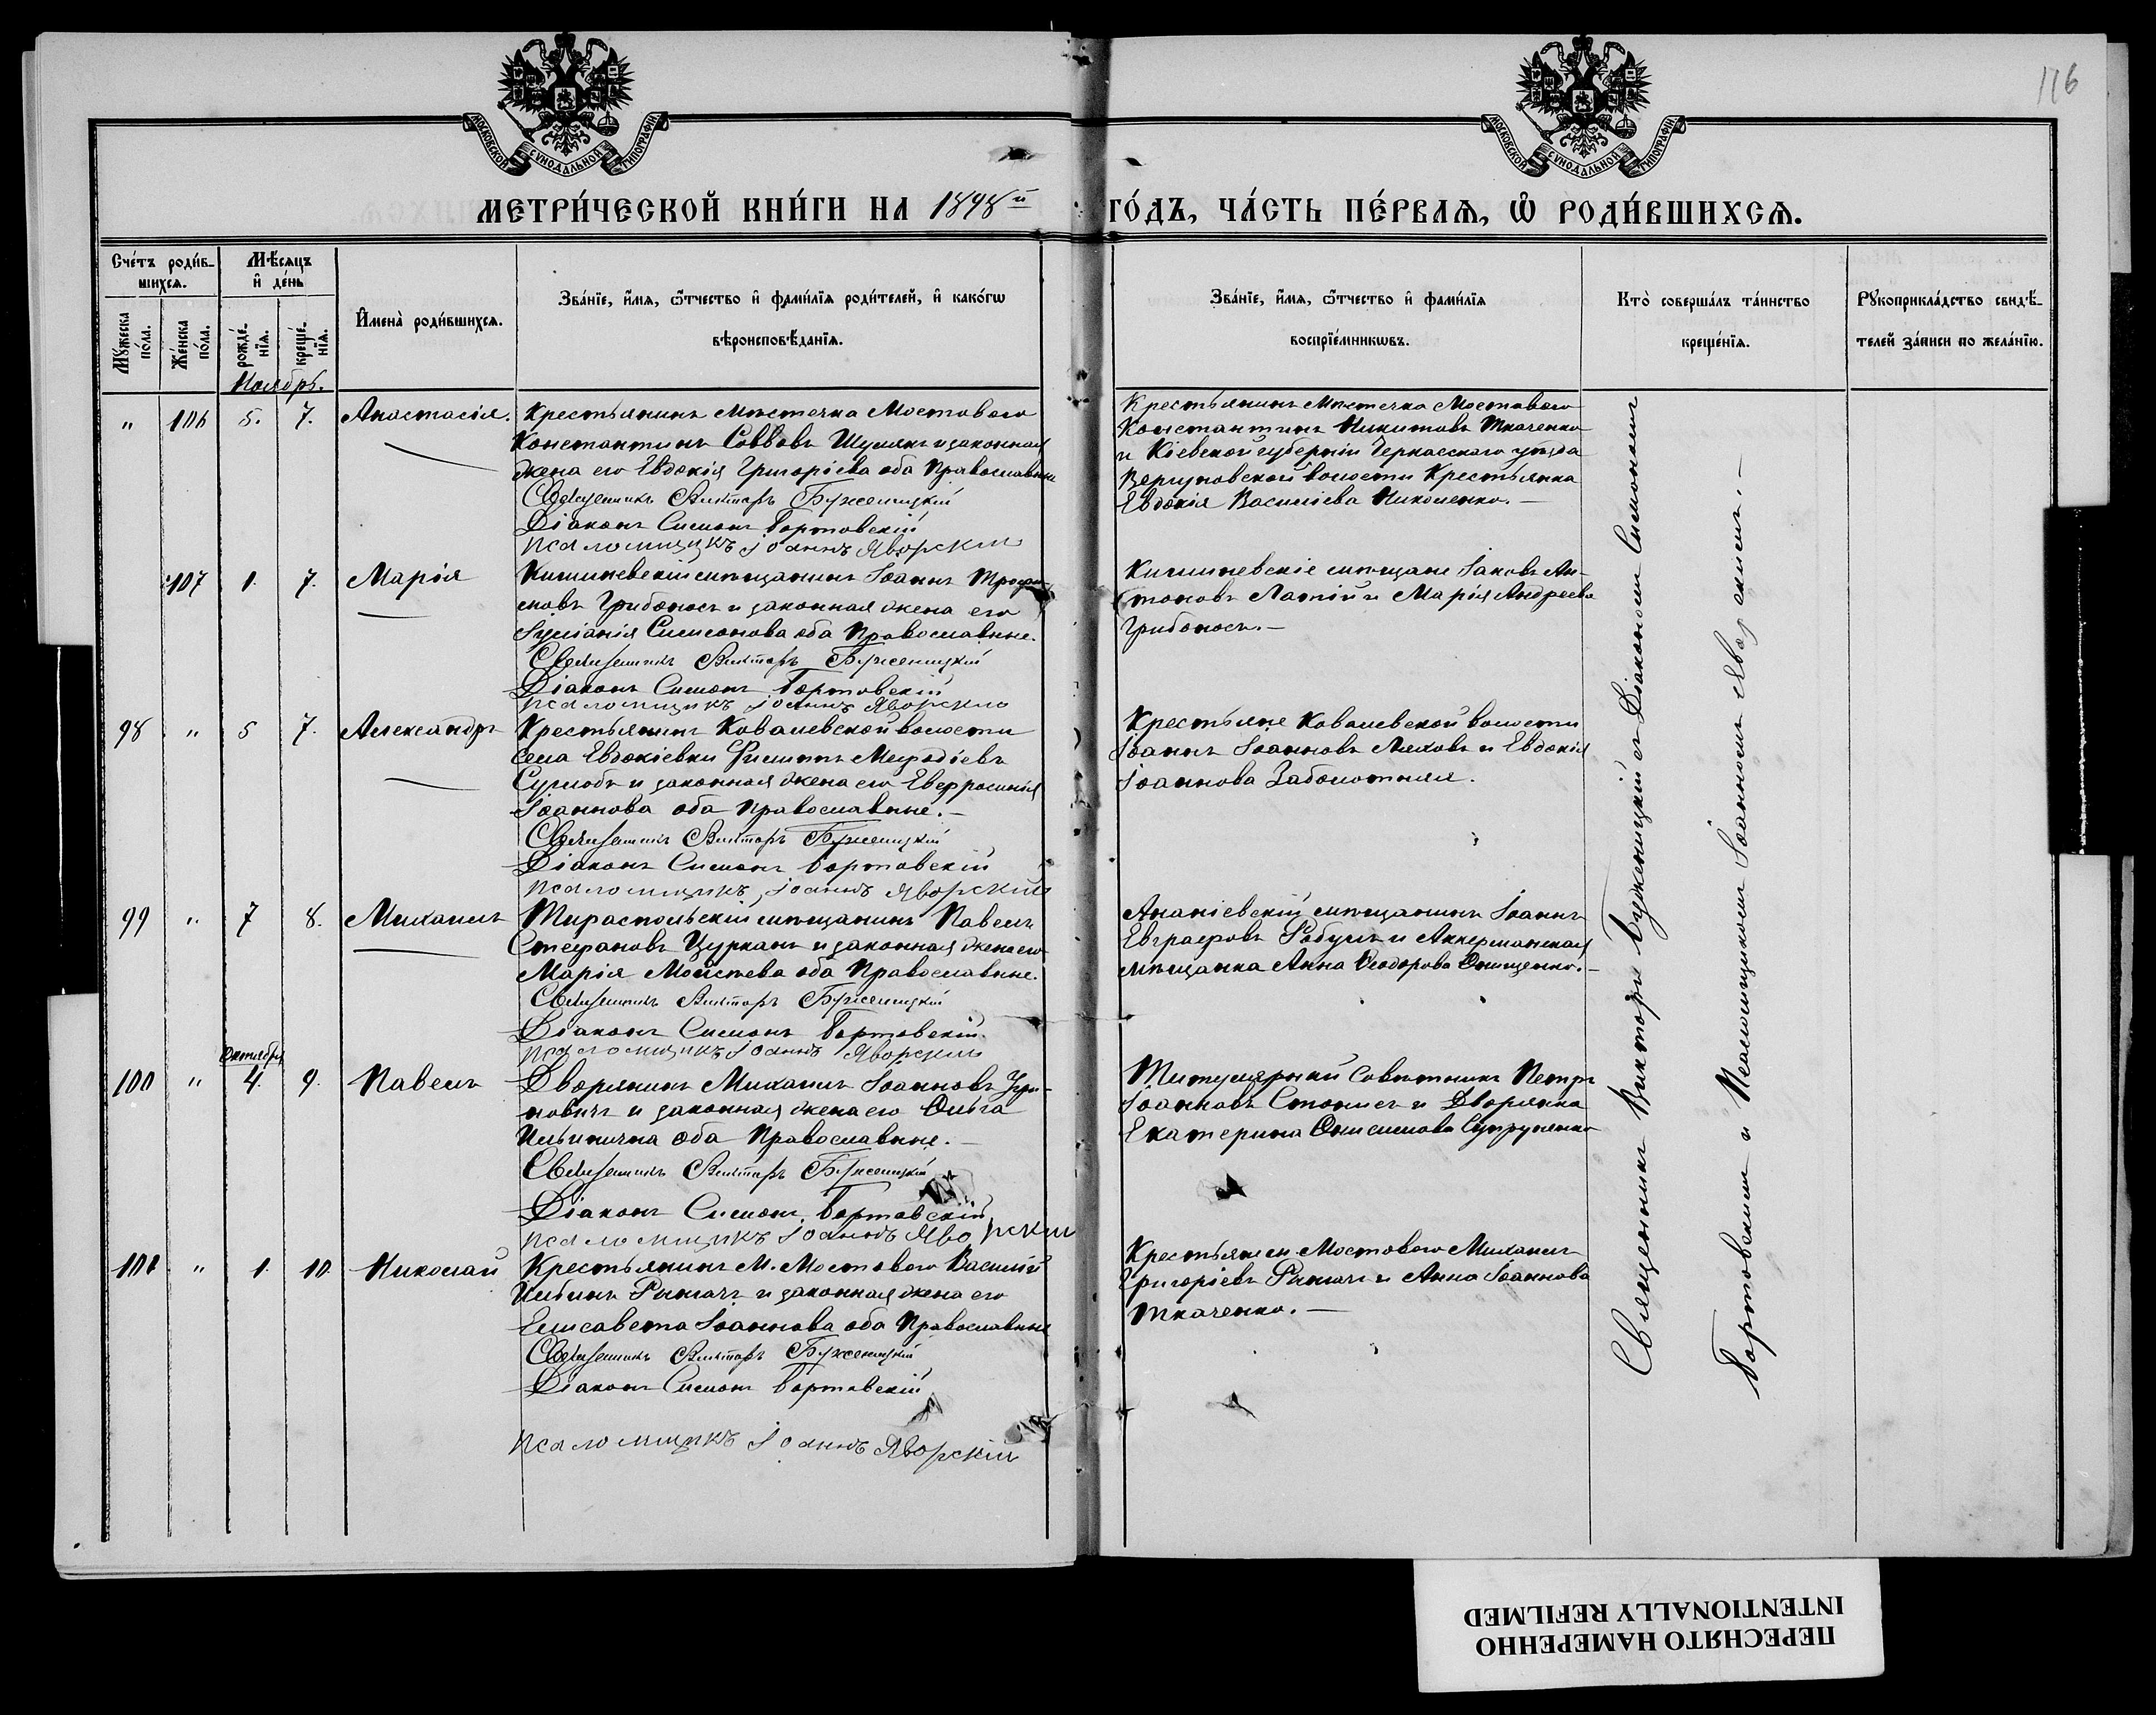 116
МОСКОВСКОЙ СУНОДАЛЬНОЙ ТИПОГРАФІИ
МОСКОВСКОЙ СУНОДАЛЬНОЙ ТИПОГРАФІИ
МЕТРИ́ЧЕСКОЙ КНИ́ГИ НА 1898й ГО́ДЪ, ЧА́СТЬ ПЕ́РВАѦ, Ѽ РОДИ́ВШИХСѦ.
Сче́тъ роди́в-
шихсѧ.
Мѣ́сѧцъ
и҆ де́нь
Мꙋ́жеска
по́ла.
Же́нска
по́ла.
рожде́-
нїѧ.
креще́-
нїѧ.
И҆мена̀ роди́вшихсѧ.
Зва́нїе, и҆́мѧ, ѻ҆́тчество и҆ фами́лїѧ роди́телей, и҆ како́гѡ
вѣроисповѣ́данїѧ.
Зва́нїе, и҆́мѧ, ѻ҆́тчество и҆ фами́лїѧ
воспрїе́мникѡвъ.
Кто̀ соверша́лъ та́инство
креще́нїѧ.
Рꙋкоприкла́дство свидѣ́-
телей за́писи по жела́нїю.
Ноябрь.
" 106 5. 7. Анастасія.
Крестьянинъ мѣстечка Мостового
Константинъ Саввовъ Шумякъ и законная
жена его Евдокія Григоріева оба Православные
Священникъ Викторъ Буженицкій
Діаконъ Симонъ Бортовскій
псаломщикъ Іоаннъ Яворскій
Крестьянинъ Мѣстечка Мостового
Константинъ Никитовъ Ткаченко
и Кіевской губерніи Черкасскаго уѣзда
Вергуновской волости Крестьянка
Евдокія Василіева Николенко.—
107 1. 7. Марія
Кишиневскій мѣщанинъ Іоаннъ Трофи-
мовъ Грибоносъ и законная жена его
Іуліанія Симеонова оба Православные.
Священникъ Викторъ Буженицкій
Діаконъ Симонъ Бортовскій
псаломщикъ Іоаннъ Яворскій
Кишиневскіе мѣщане Іаковъ Ан-
тоновъ Латій и Марія Андреева
Грибоносъ.—
98 " 5 7. Александръ
Крестьянинъ Ковалевской волости
села Евдокіевки Филиппъ Мефодіевъ
и законная жена его Евфросинія
Іоаннова оба Православные.—
Священникъ Викторъ Буженицкій
Діаконъ Симонъ Бортовскій
псаломщикъ Іоаннъ Яворскій
Крестьяне Ковалевской волости
Іоаннъ Іоанновъ Ляховъ и Евдокія
Іоаннова Заболотняя.
99 " 7 8. Михаилъ
Тираспольскій мѣщанинъ Павелъ
Стефановъ Цурканъ и законная жена его
Марія Моѵсеева оба Православные.
Священникъ Викторъ Буженицкій
Діаконъ Симонъ Бортовскій.
псаломщикъ Іоаннъ Яворскій
Ананіевскій мѣщанинъ Іоаннъ
Евграфовъ и Аккерманская
мѣщанка Анна Ѳеодорова Онищенко.—
Октября
100 " 4. 9. Павелъ
Дворянинъ Михаилъ Іоанновъ
и законная жена его Ольга
Ильинична оба Православные.—
Священникъ Викторъ Буженицкій
Діаконъ Симонъ Бортовскій
псаломщикъ Іоаннъ Яворскій
Титулярный Совѣтникъ Петръ
Іоанновъ и Дворянка
Екатерина Онисимова Супруненко
101 " 1. 10. Николай
Крестьянинъ М. Мостового Василій
Ильинъ и законная жена его
Елисавета Іоаннова оба Православные
Священникъ Викторъ Буженицкій
Діаконъ Симонъ Бортовскій
псаломщикъ Іоаннъ Яворскій
Крестьяне м. Мостового Михаилъ
Григоріевъ и Анна Іоаннова
Ткаченко.—
Священникъ Викторъ Буженицкій съ Діакономъ Симономъ
Бортовскимъ и Псаломщикомъ Іоанномъ Яворскимъ.—
ПЕРЕСНЯТО НАМЕРЕННО
INTENTIONALLY REFILMED